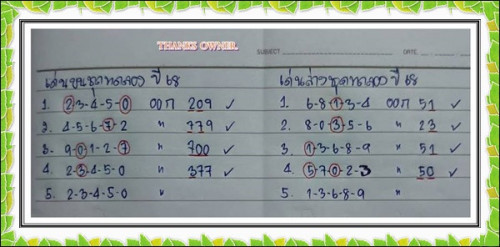 THANKS OWNER.
SUBJECT
DATE
เด่นบนชุดทดลอง ปี 68
1. 2-3-4-5-0 ออก 209 ✓
2. 4-5-6-7-2 " 779 ✓
3. 9-0-1-2-7 " 700 ✓
4. 2-3-4-5-0 " 377 ✓
5. 2-3-4-5-0 "
เด่นล่างชุดทดลอง ปี 68
1. 6-8-1-3-4 ออก 51 ✓
2. 8-0-3-5-6 " 23 ✓
3. 1-3-6-8-9 " 51 ✓
4. 5-7-0-2-3 " 50 ✓
5. 1-3-6-8-9 "